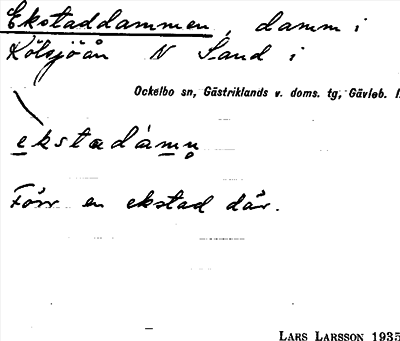 Ekstaddammen, damm i
Kölsjöån N Sand i
Ockelbo sn, Gästriklands v. doms. tg, Gävleb. l.
ekstadámn
Förr en ekstad där.
LARS LARSSON 1935